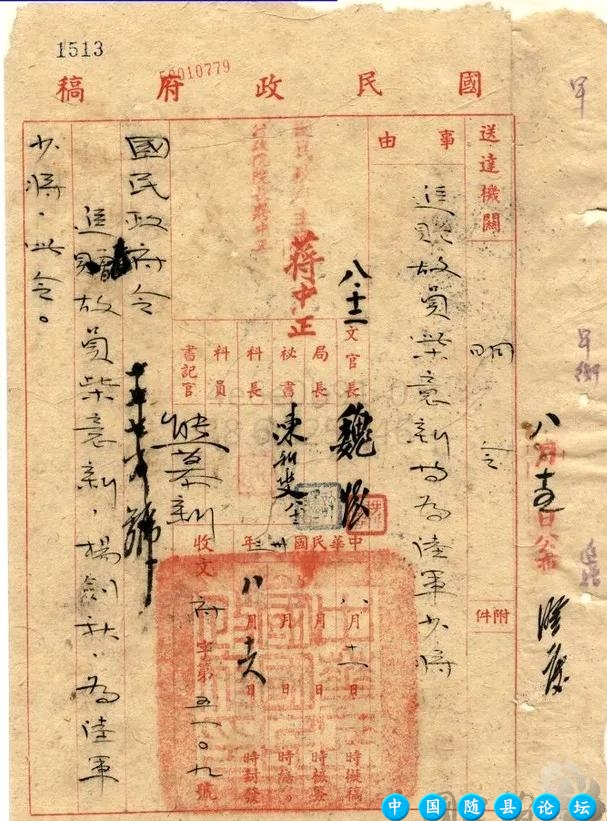 1513
50010779
國民政府稿
送達機關
事由
附件
明令
追贈故員柴意新等為陸軍少將
八月十五日公布
蔣中正
行政院院長蔣中正
八.十二
文官長
魏懷
局長
秘書
科長
科員
書記官
熊慕新
中華民國卅三年
八月十一日時擬稿
月日時核簽
月日時繕
八月十六日時封發
收文府字第五一〇九號
國民政府令
追贈故員柴意新,楊劍秋,為陸軍
少將,此令。
中国随县论坛